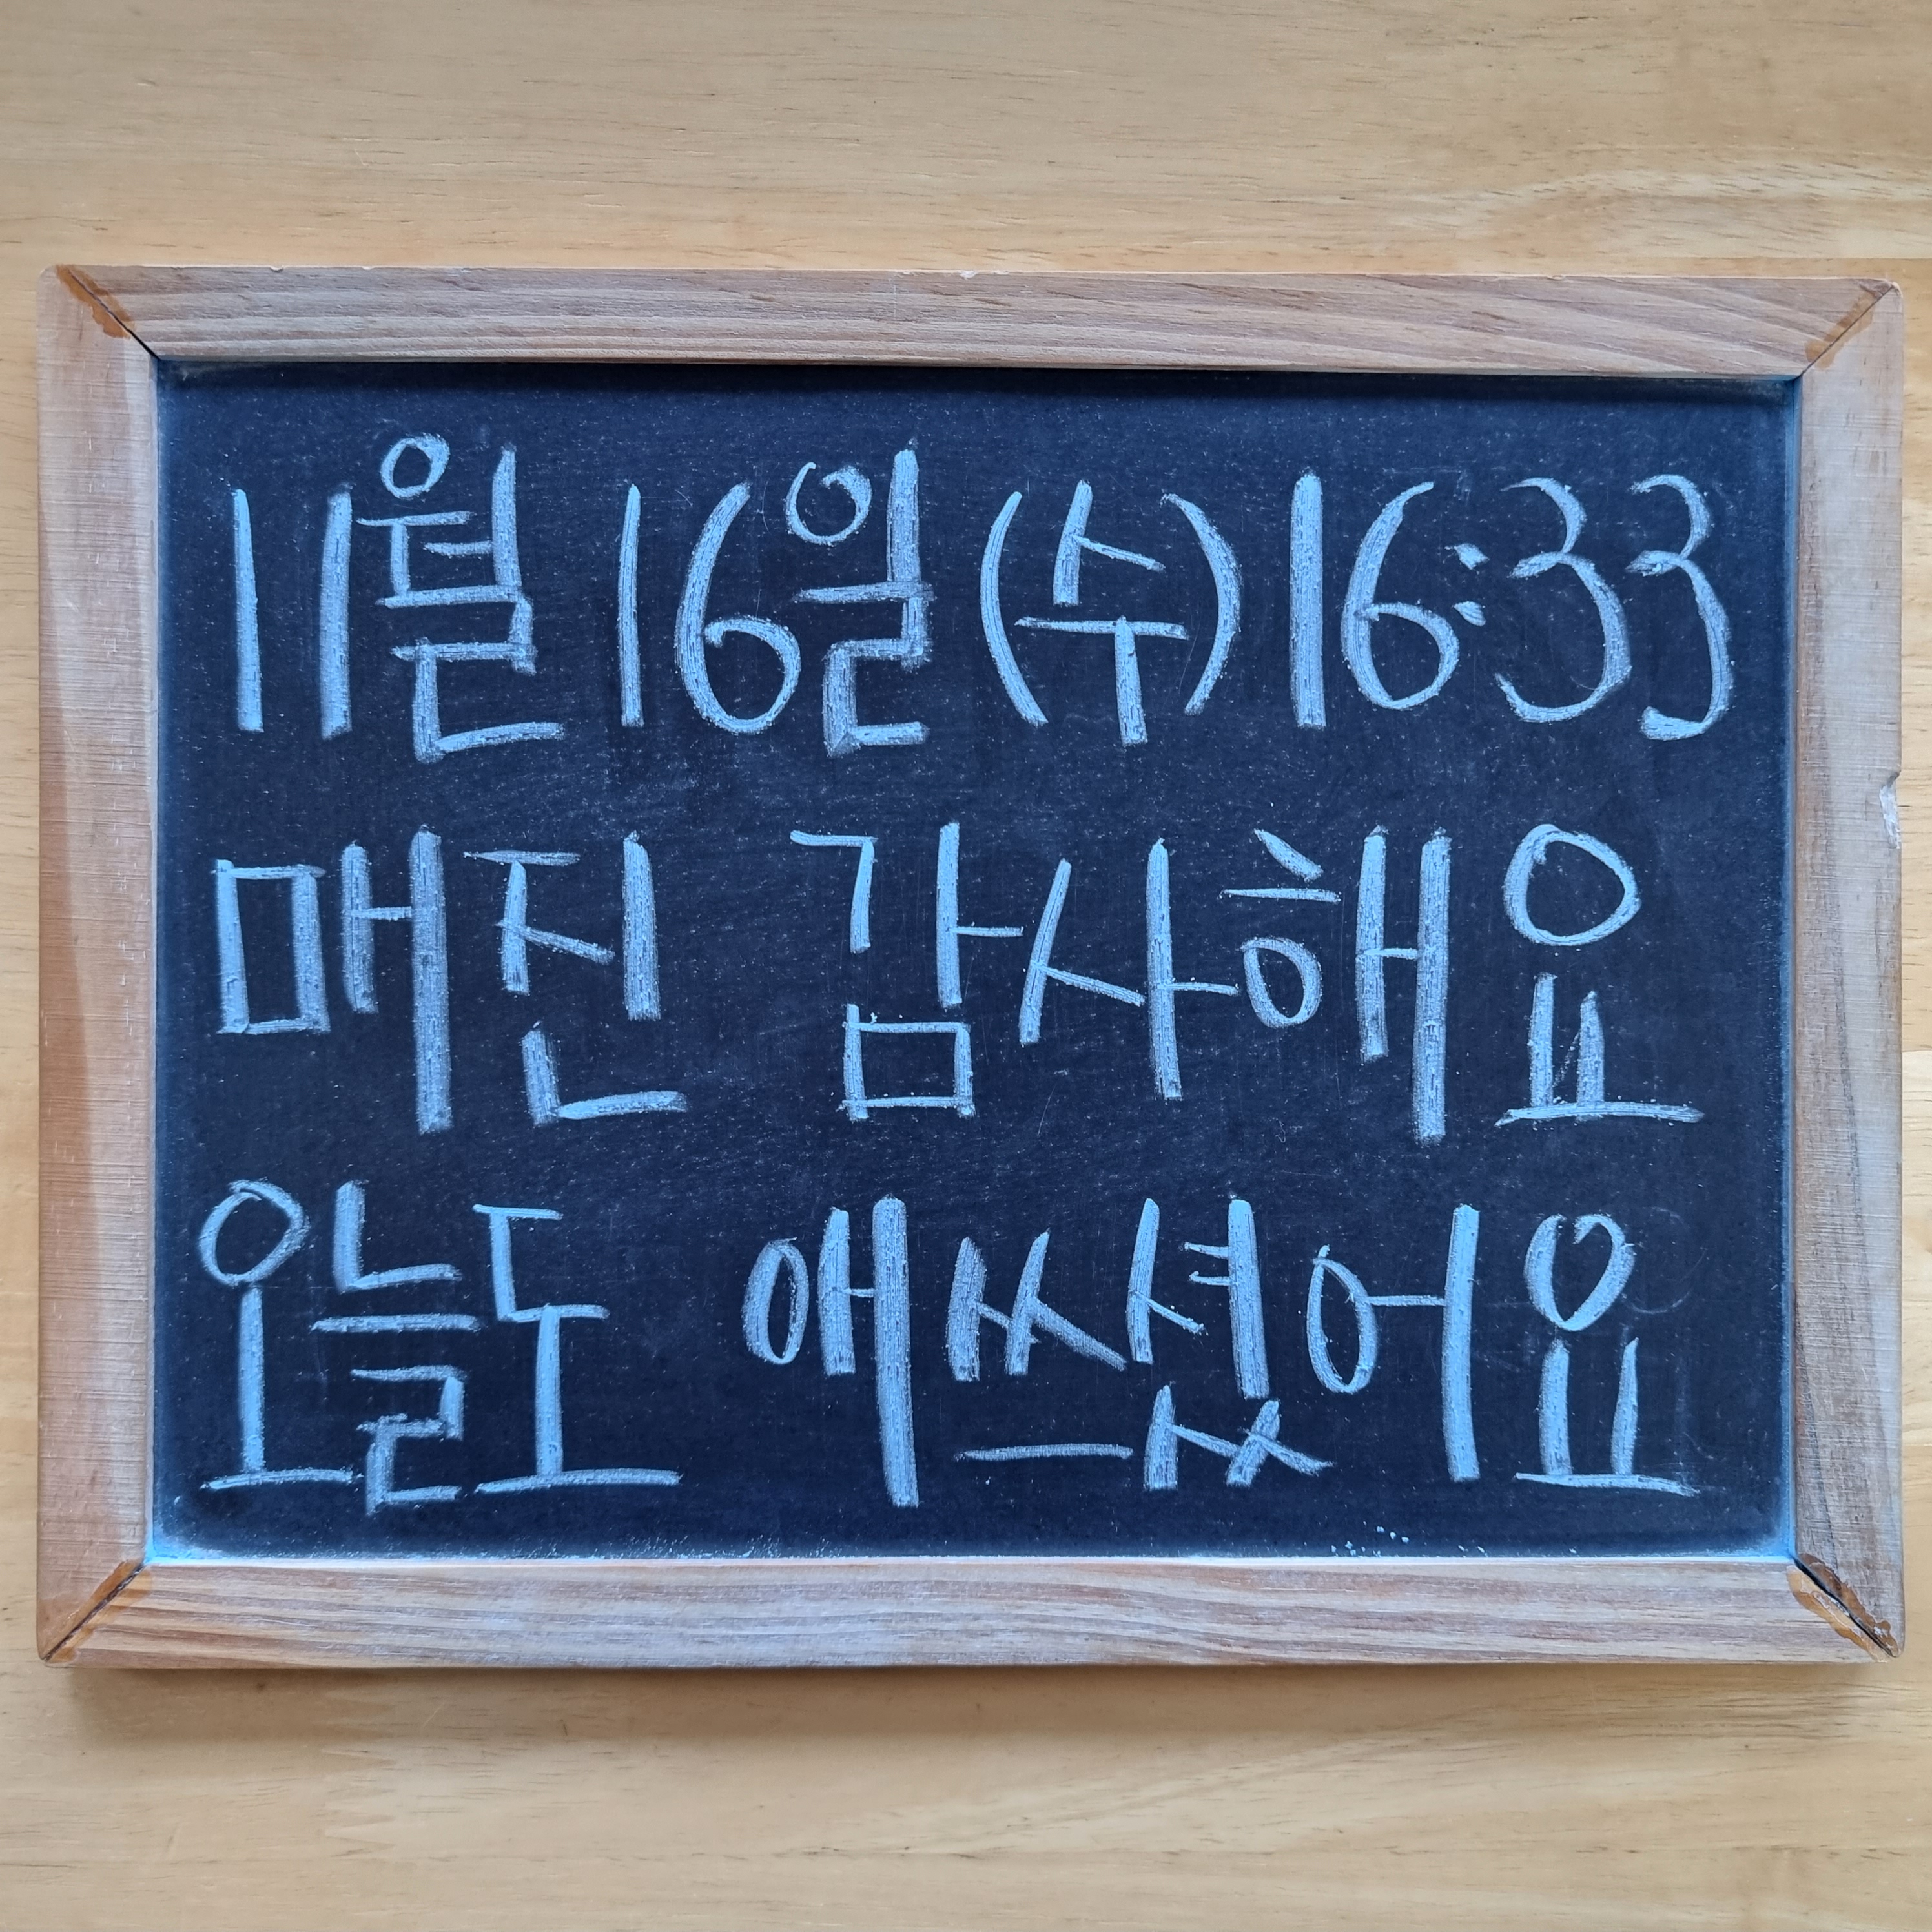 11월 16일 (수) 16:33
매진 감사해요
오늘도 애쓰셨어요